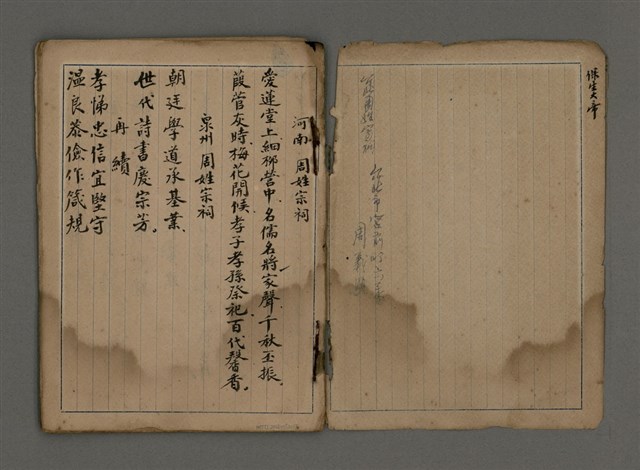 保生大帝
河南 周姓宗祠
愛蓮堂上細柳營中名儒名將家聲千秋丕振。
葭管灰時梅花開候孝子孝孫祭祀百代馨香。
泉州 周姓宗祠
朝廷學道承基業
世代詩書慶宗芳。
再續
孝悌忠信宜堅守
溫良恭儉作箴規